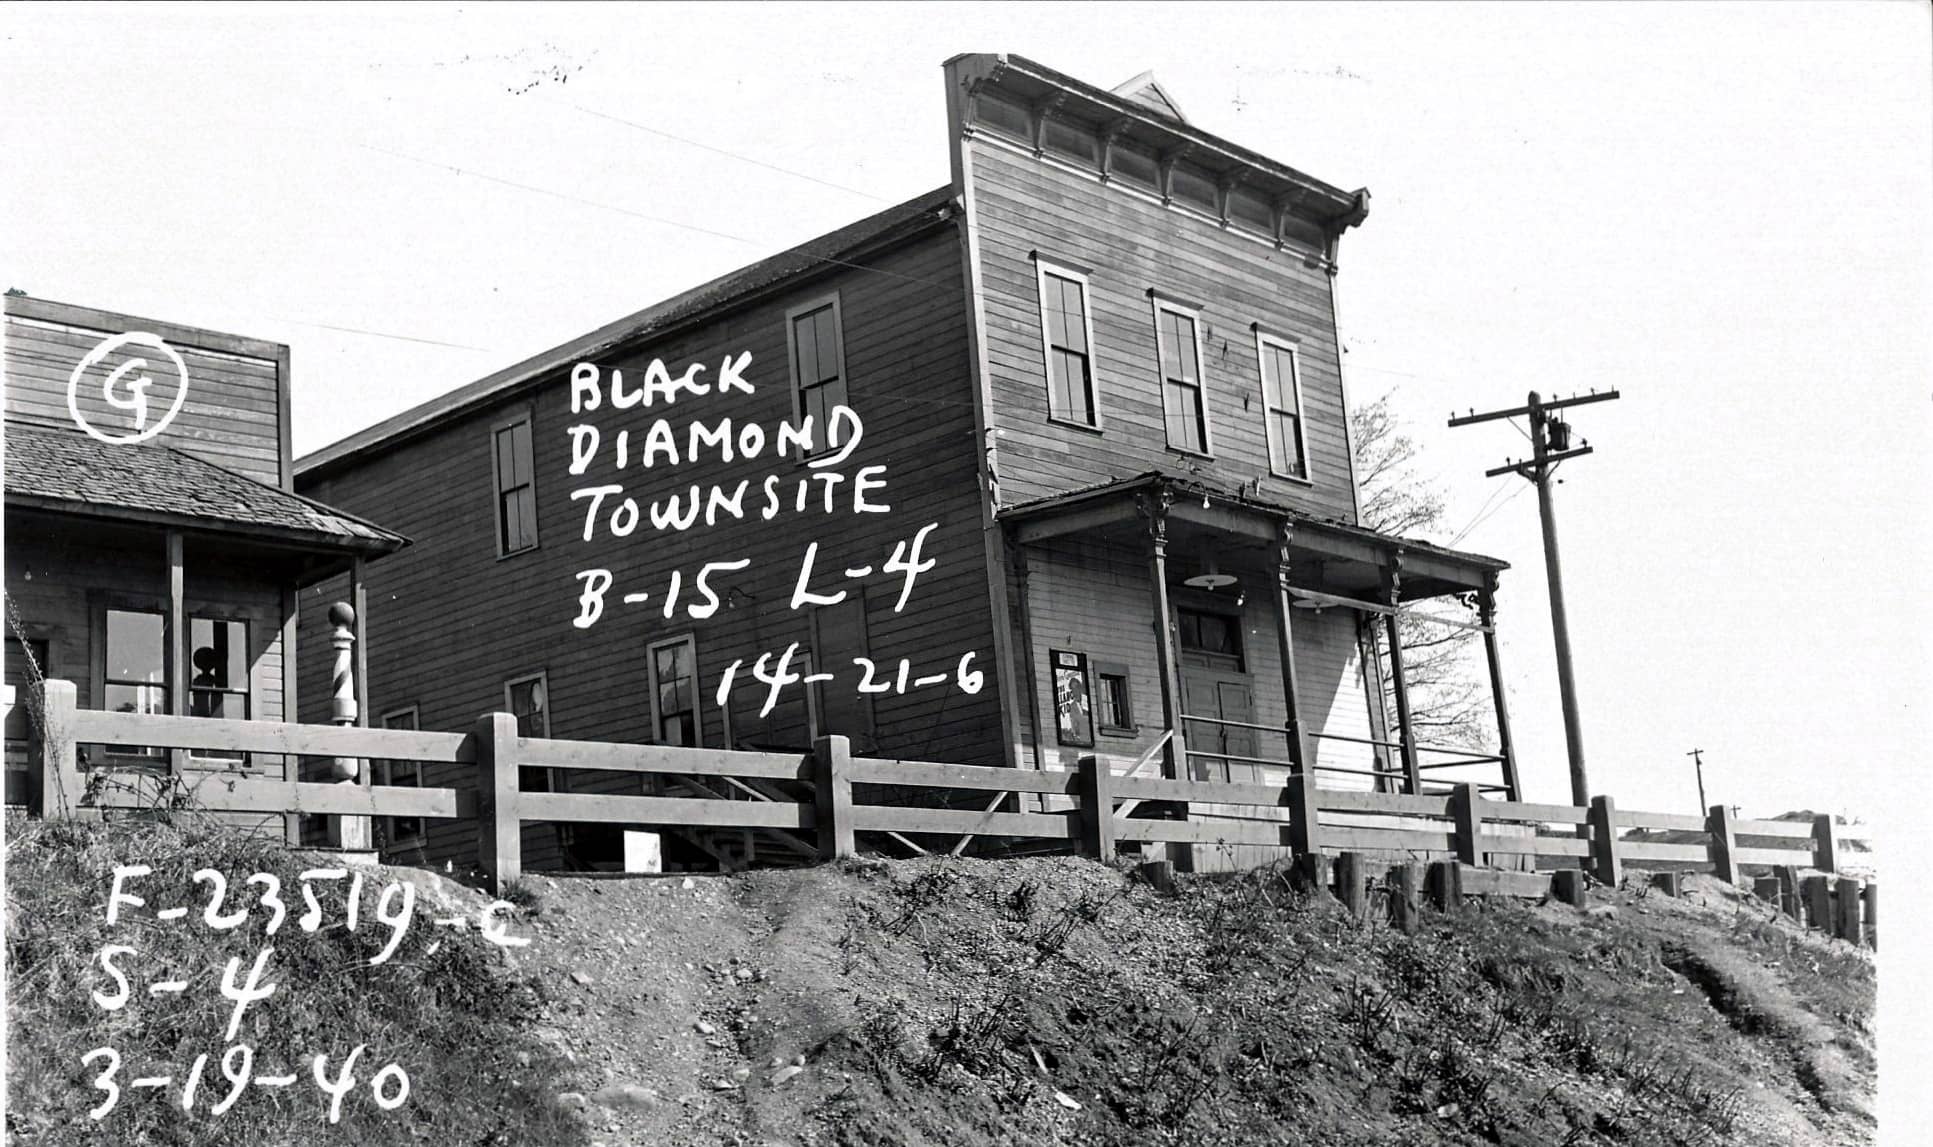 G
BLACK
DIAMOND
TOWNSITE
B-15 L-4
14-21-6
F-23519-C
S-4
3-19-40